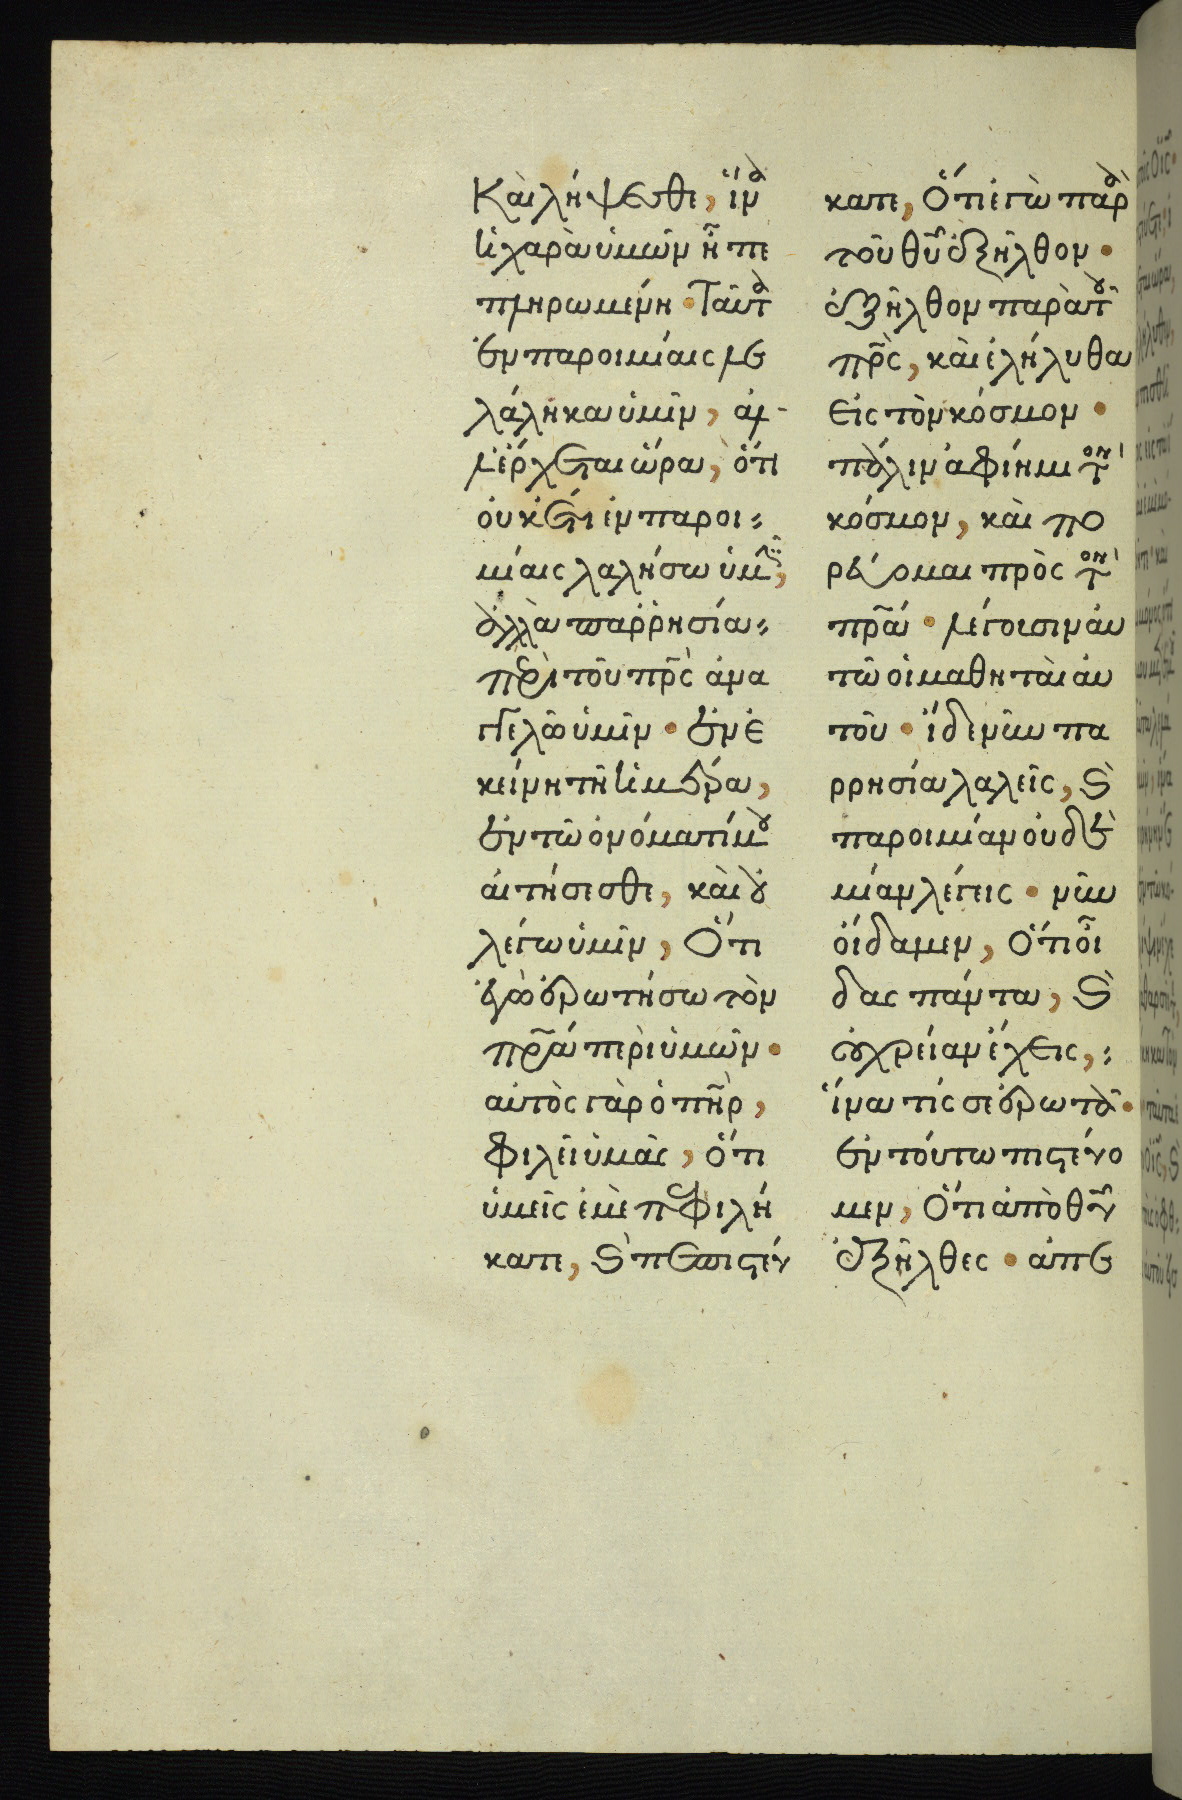 Καὶ λήψεσθε, ἵνα
ἡ χαρὰ ὑμῶν ἦ πε
πληρωμένη · Ταῦτα
ἐν παροιμίαις λε
λάληκα ὑμῖν, ἀλ-
λ' ἔρχεται ὥρα, ὅτι
οὐκ ἔτι ἐν παροι=
μίαις λαλήσω ὑμῖν,
ἀλλὰ παῤῥησία=
περὶ τοῦ πρ̅ς ἀνα
γγελῶ ὑμῖν · ἐν ἐ
κείνη τῆ ἡμέρα,
ἐν τῶ ὀνόματί μου
αἰτήσεσθε, καὶ οὐ
λέγω ὑμῖν, Ὅτι
ἐγὼ ἐρωτήσω τὸν
πρ̅α περὶ ὑμῶν ·
αὐτὸς γὰρ ὁ πη̅ρ,
φιλεῖ ὑμᾶς, ὅτι
ὑμεῖς ἐμὲ πεφιλή
κατε, καὶ πεπιστεύ
κατε, Ὅτι ἐγὼ παρὰ
τοῦ θυ̅ ἐξῆλθον ·
ἐξῆλθον παρὰ τοῦ
πρ̅ς, καὶ ἐλήλυθα
εἰς τὸν κόσμον ·
πάλιν ἀφίημι τὸν
κόσμον, καὶ πο
ρεύομαι πρὸς τὸν
πρ̅α · λέγουσιν αὐ
τῶ οἱ μαθηταὶ αὐ
τοῦ · ἴδε νῦν πα
ρρησία λαλεῖς, καὶ
παροιμίαν οὐδε
μίαν λέγεις · νῦν
οἴδαμεν, Ὅτι οἶ
δας πάντα, καὶ
οὐ χρείαν ἔχεις,=
ἵνα τίς σε ἐρωτᾶ ·
ἐν τούτω πιστεύο
μεν, Ὅτι ἀπὸ θυ̅
ἐξῆλθες · ἀπε